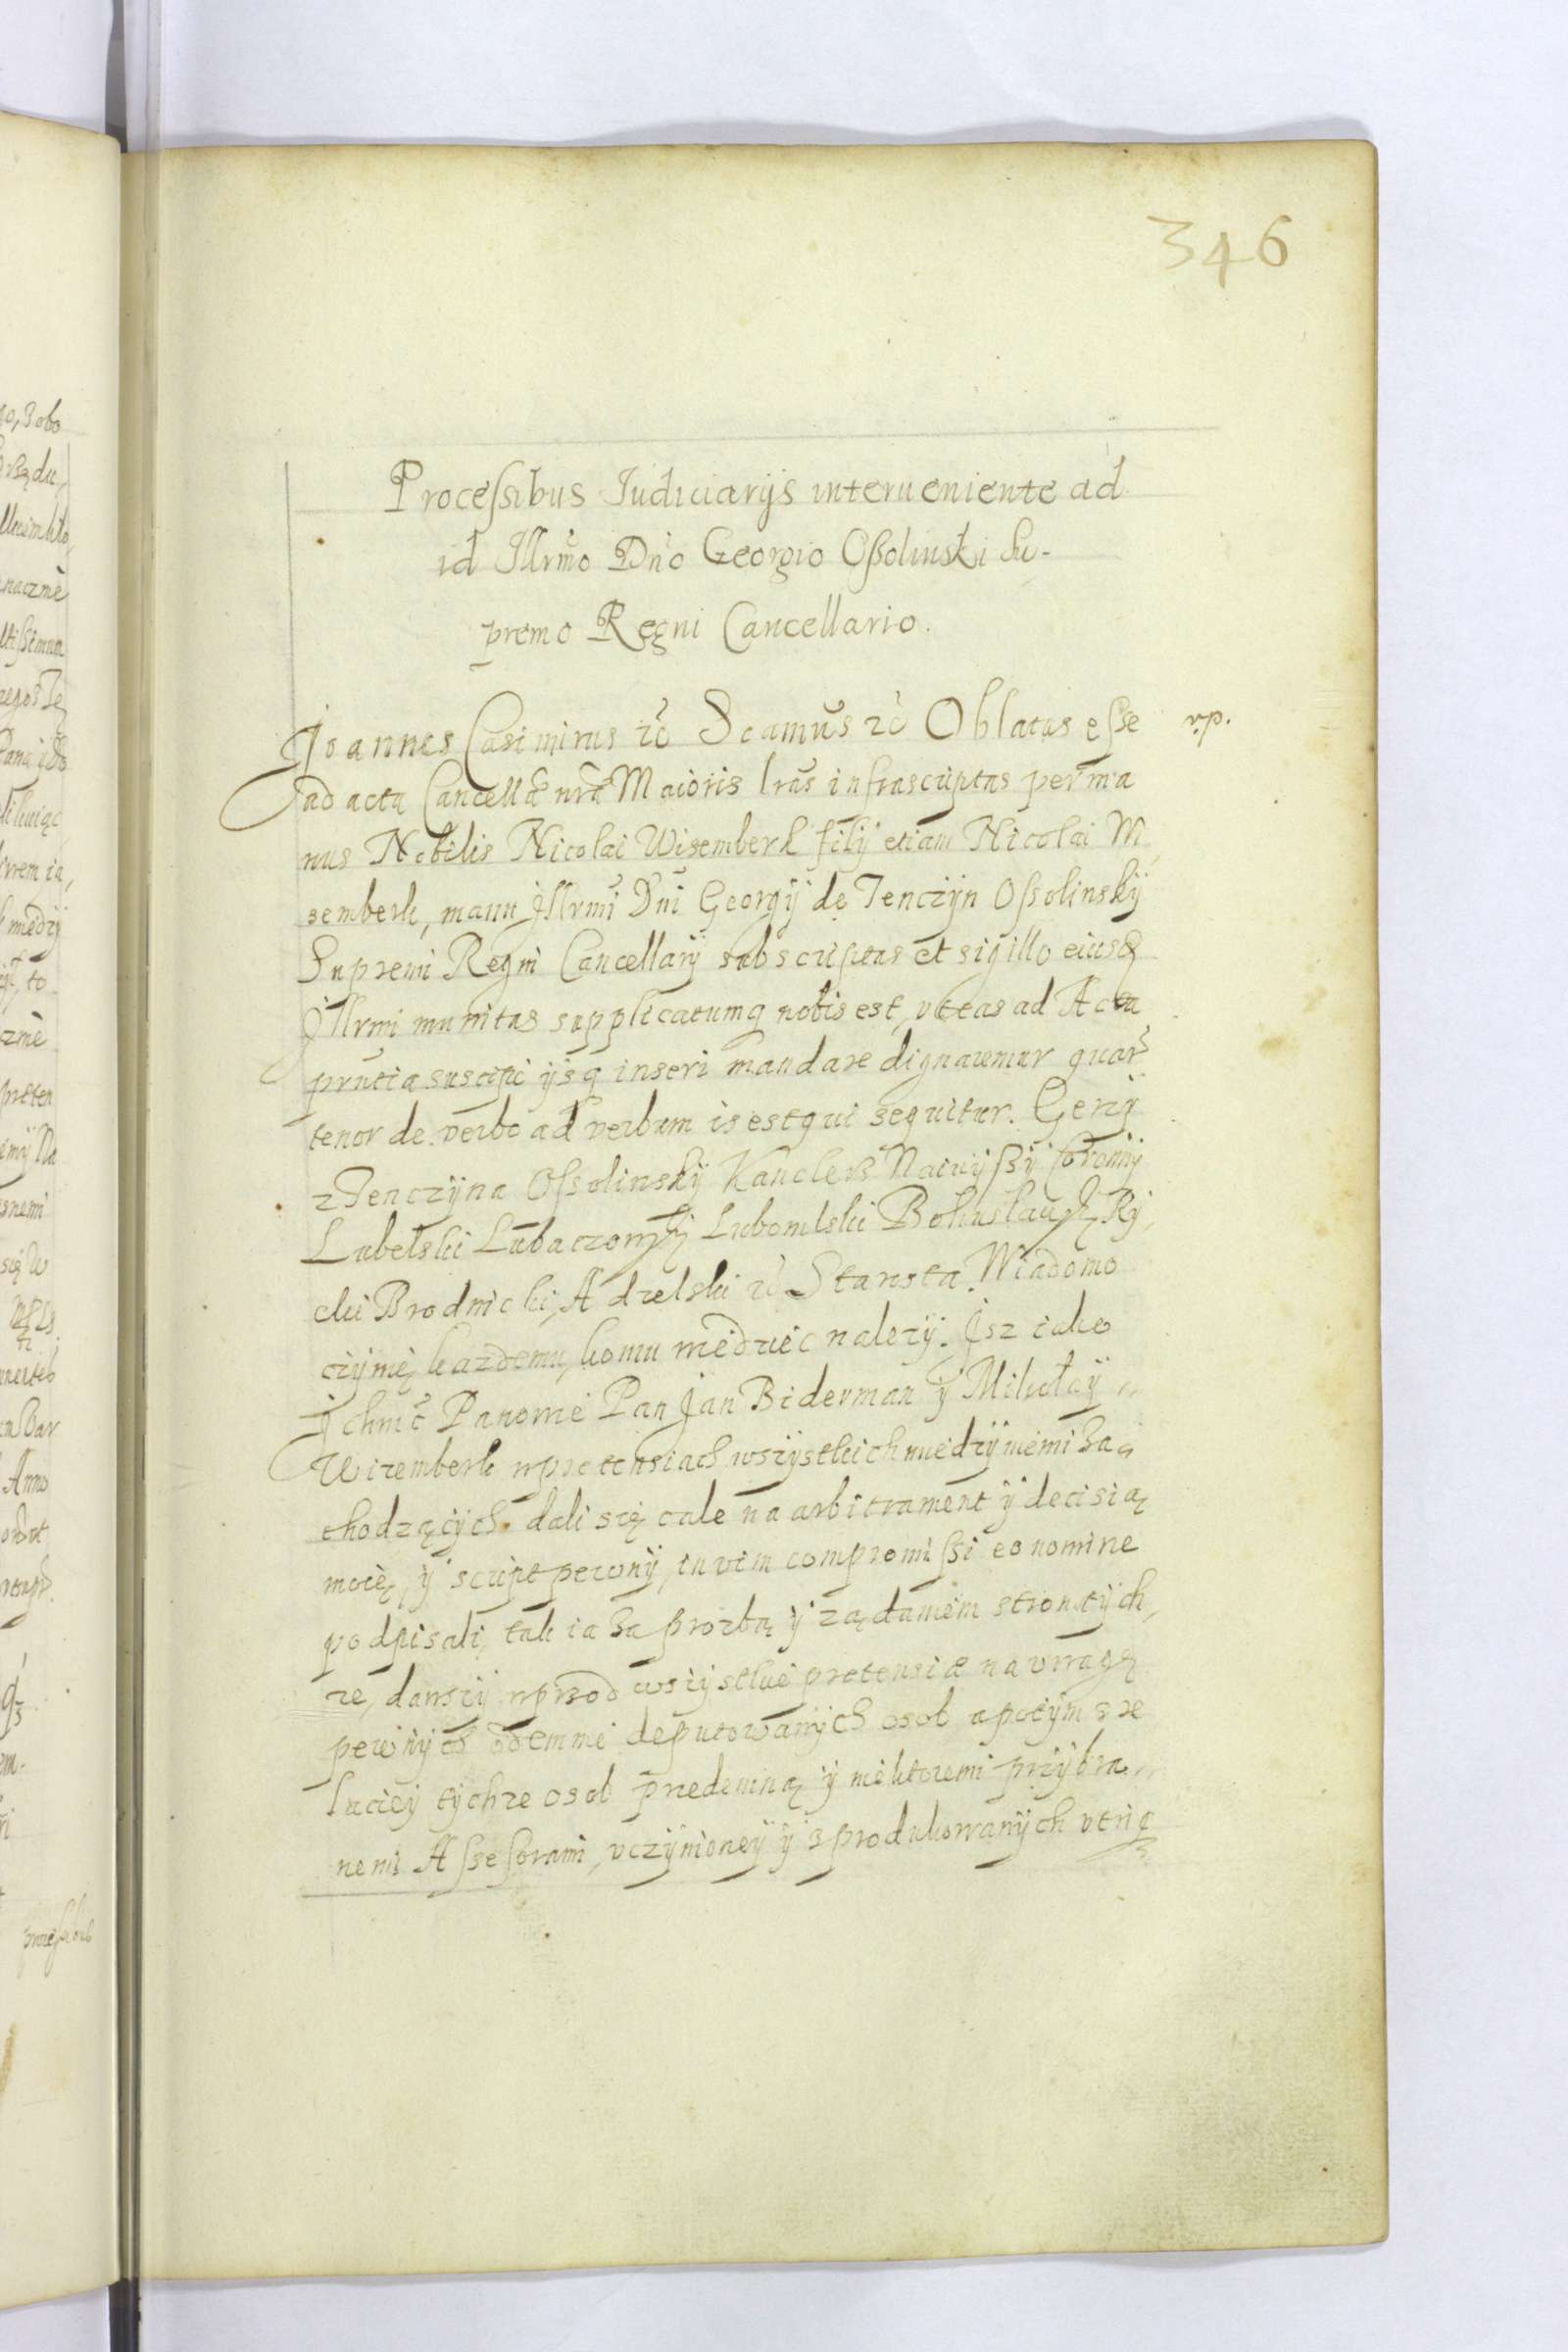 346
Processibus Iudiciarijs interueniente ad
id Illrmo Dno Georgio Ossolinski Su-
premo Regni Cancellario.
Joannes Casimirus rc̄ Scamus rc̄ Oblatas esse
v.p.
ad acta Cancellā nrā Maioris lras infrascriptas per ma
nus Nobilis Nicolai Wisemberk filij etiam Nicolai
semberk, manu Illrmi Dni Georgij de Tenczyn Ossolinsky
Supremi Regni Cancellarij subscriptas et sigillo eiusd
Illrmi munitas supplicatumq nobis est, vt eas ad Acta
prntia suscipi ijsq inseri mandare dignaremur quar
tenor de verbo ad verbum is est qui sequitur. Gerzy
z Tenczyna Ossolinsky Kanclerz Naiwyssy Koronny
Lubelski Lubaczowsky Lubomlski Bohuslawsky Ry,
cki Brodnicki, Adzelski rc̄ Starosta. Wiadomo
czynię kazdemu, komu wiedziec nalezy. Isz iako
Ichmc Panowie Pan Jan Biderman y Mikołay
Wizemberk w pretensiach wszystkich miedzy niemi za
chodzących. dali się cale na arbitrament y decisią
moię, y script pewny, in vim compromissi eo nomine
podpisali, tak ia za prozbą y ządaniem stron tych,
ze, dawszy wprzod wszystkie pretensiae na vwagę
pewnych odemnie deputowanych osob a potym z re
laciey tychze osob przedemną y niektoremi przybra
nemi Assessorami, vczynioney y z produkowanych vtrīq